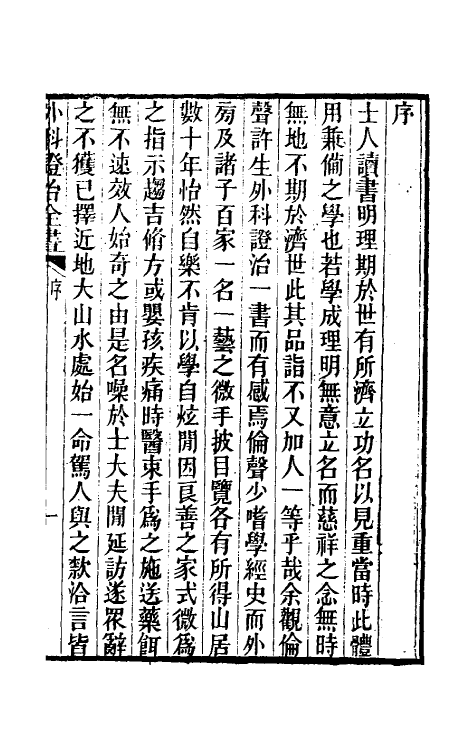 序
士人讀書明理期於世有所濟立功名以見重當時此體
用兼備之學也若學成理明無意立名而慈祥之念無時
無地不期於濟世此其品詣不又加人一等乎哉余觀倫
聲許生外科證治一書而有感焉倫聲少嗜學經史而外
旁及諸子百家一名一藝之微手披目覽各有所得山居
數十年怡然自樂不肯以學自炫閒因良善之家式微爲
之指示趨吉脩方或嬰孩疾痛時醫束手爲之施送藥餌
無不速效人始奇之由是名噪於士大夫閒延訪遂眾辭
之不獲已擇近地大山水處始一命駕人與之欵洽言皆
外科證治全書
序
一